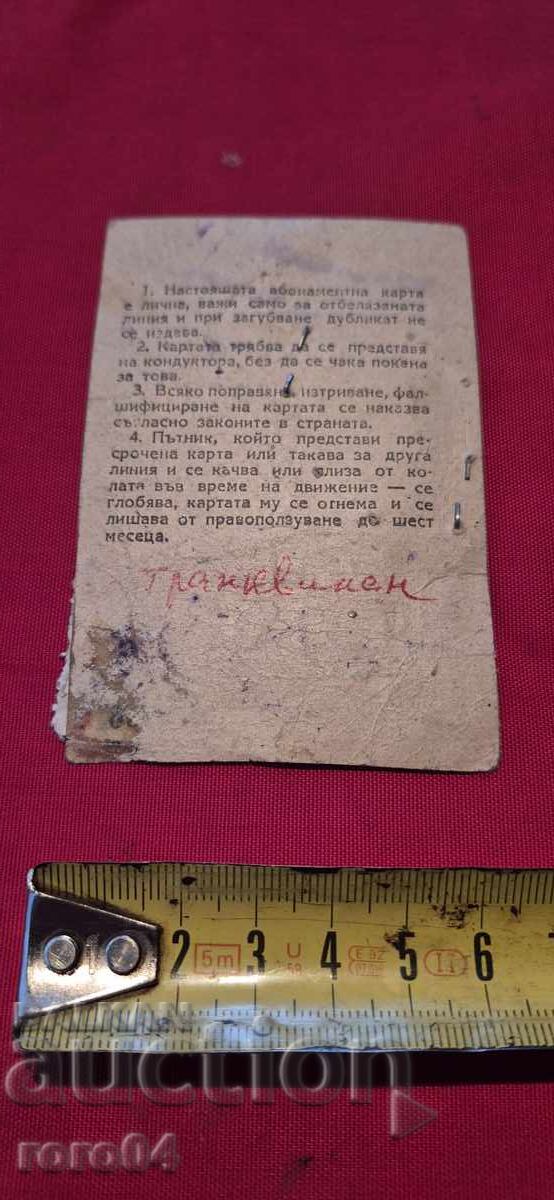 1. Настоящата абонаментна карта
е лична, важи само за отбелязаната
линия и при загубване дубликат не
се издава.
2. Картата трябва да се представя
на кондуктора, без да се чака покана
за това.
3. Всяко поправяне, изтриване, фал-
шифициране на картата се наказва
съгласно законите в страната.
4. Пътник, който представи пре-
срочена карта или такава за друга
линия и се качва или слиза от ко-
лата във време на движение — се
глобява, картата му се отнема и се
лишава от правоползуване до шест
месеца.
2 5m 3 U 4 5 II 6
auction
roro04